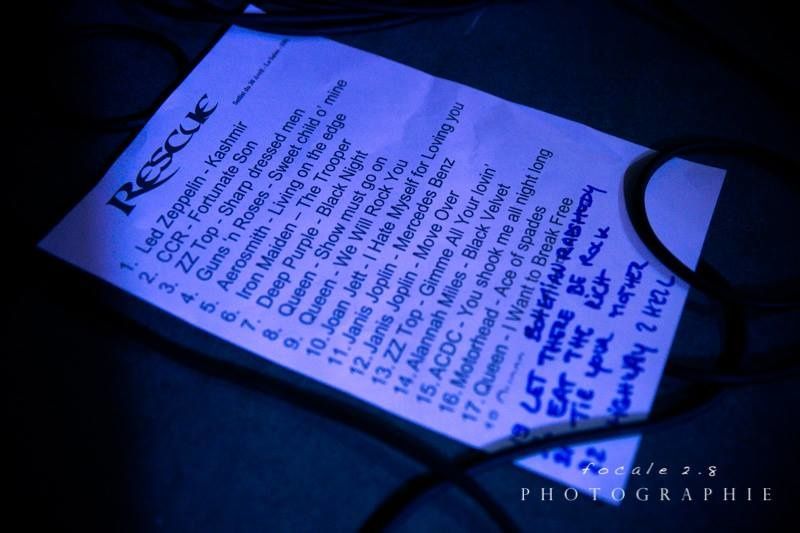 RESCUE
1. Led Zeppelin - Kashmir
2. CCR - Fortunate Son
3. ZZ Top - Sharp dressed men
4. Guns 'n Roses - Sweet child o' mine
5. Aerosmith - Living on the edge
6. Iron Maiden – The Trooper
7. Deep Purple - Black Night
8. Queen - Show must go on
9. Queen - We Will Rock You
10. Joan Jett - I Hate Myself for Loving you
11. Janis Joplin - Mercedes Benz
12. Janis Joplin - Move Over
13. ZZ Top - Gimme All Your lovin'
14. Alannah Miles - Black Velvet
15. ACDC - You shook me all night long
16. Motorhead - Ace of spades
17. Queen - I Want to Break Free
18 BOHEMIAN RAPSHODY
19 LET THERE BE ROCK
EAT THE RICH
TIE YOUR MOTHER
22 HIGHWAY 2 HELL
focale 2.8
PHOTOGRAPHIE